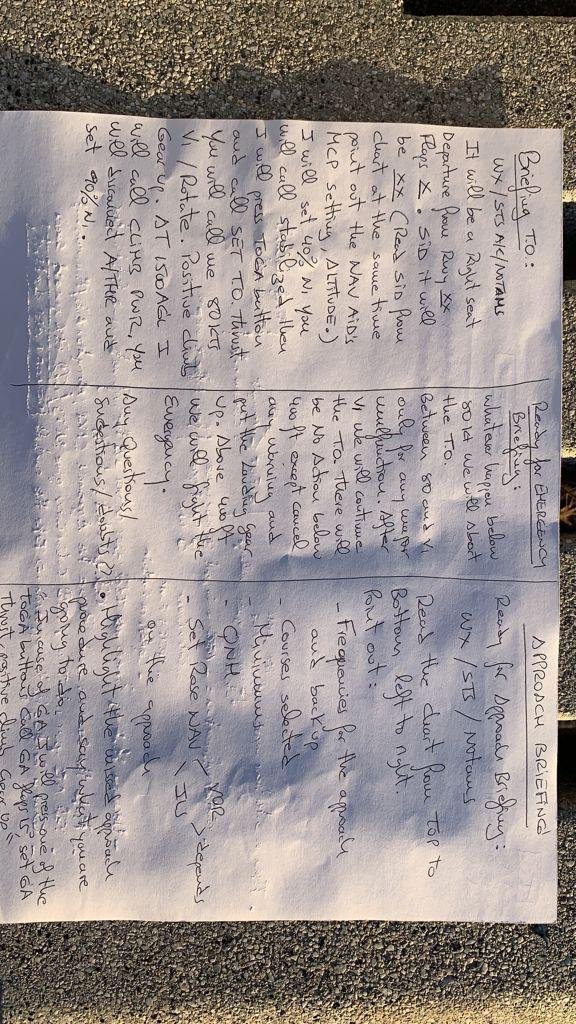 Briefing TO:
WX STS A/C/NOTAMS
It will be a Right seat
Departure from Rwy XX
Flaps X. SID it will
be XX (Read SID from
chart at the same time
point out the NAV AID's
MCP setting, ALTITUDE.)
I will set 40% N1 you
will call stabilized then
I will press TOGA button
and call SET TO Thrust
You will call me 80KTS
V1 / Rotate. Positive climb
Gear up. AT 1500 AGL I
will call CLIMB PWR, you
will disconnect A/THR and
set 90% N1.
Ready for EMERGENCY
Briefing:
whatever happen below
80 kt we will abort
the T.O.
Between 80 and V1
only for any major
malfunction. After
V1 we will continue
the TO. There will
be No Action below
400ft except cancel
any warning and
put the Landing gear
up. Above 400ft
we will fight the
Emergency.
Any Questions/
Suggestions/doubts??
APPROACH BRIEFING
Ready for Approach Briefing:
WX / STS / Notams
Read the chart from TOP to
Bottom, left to right.
Point out:
- Frequencies for the approach
and backup
- Courses selected
- Minimums
- QNH
- Set Rose NAV < VOR > depends
on the approach
• Highlight the missed approach
procedure and say what you are
going to do.
"In case of GA I will press one of the
TOGA buttons call GA flaps 15, set GA
Thrust positive climb Gear up"